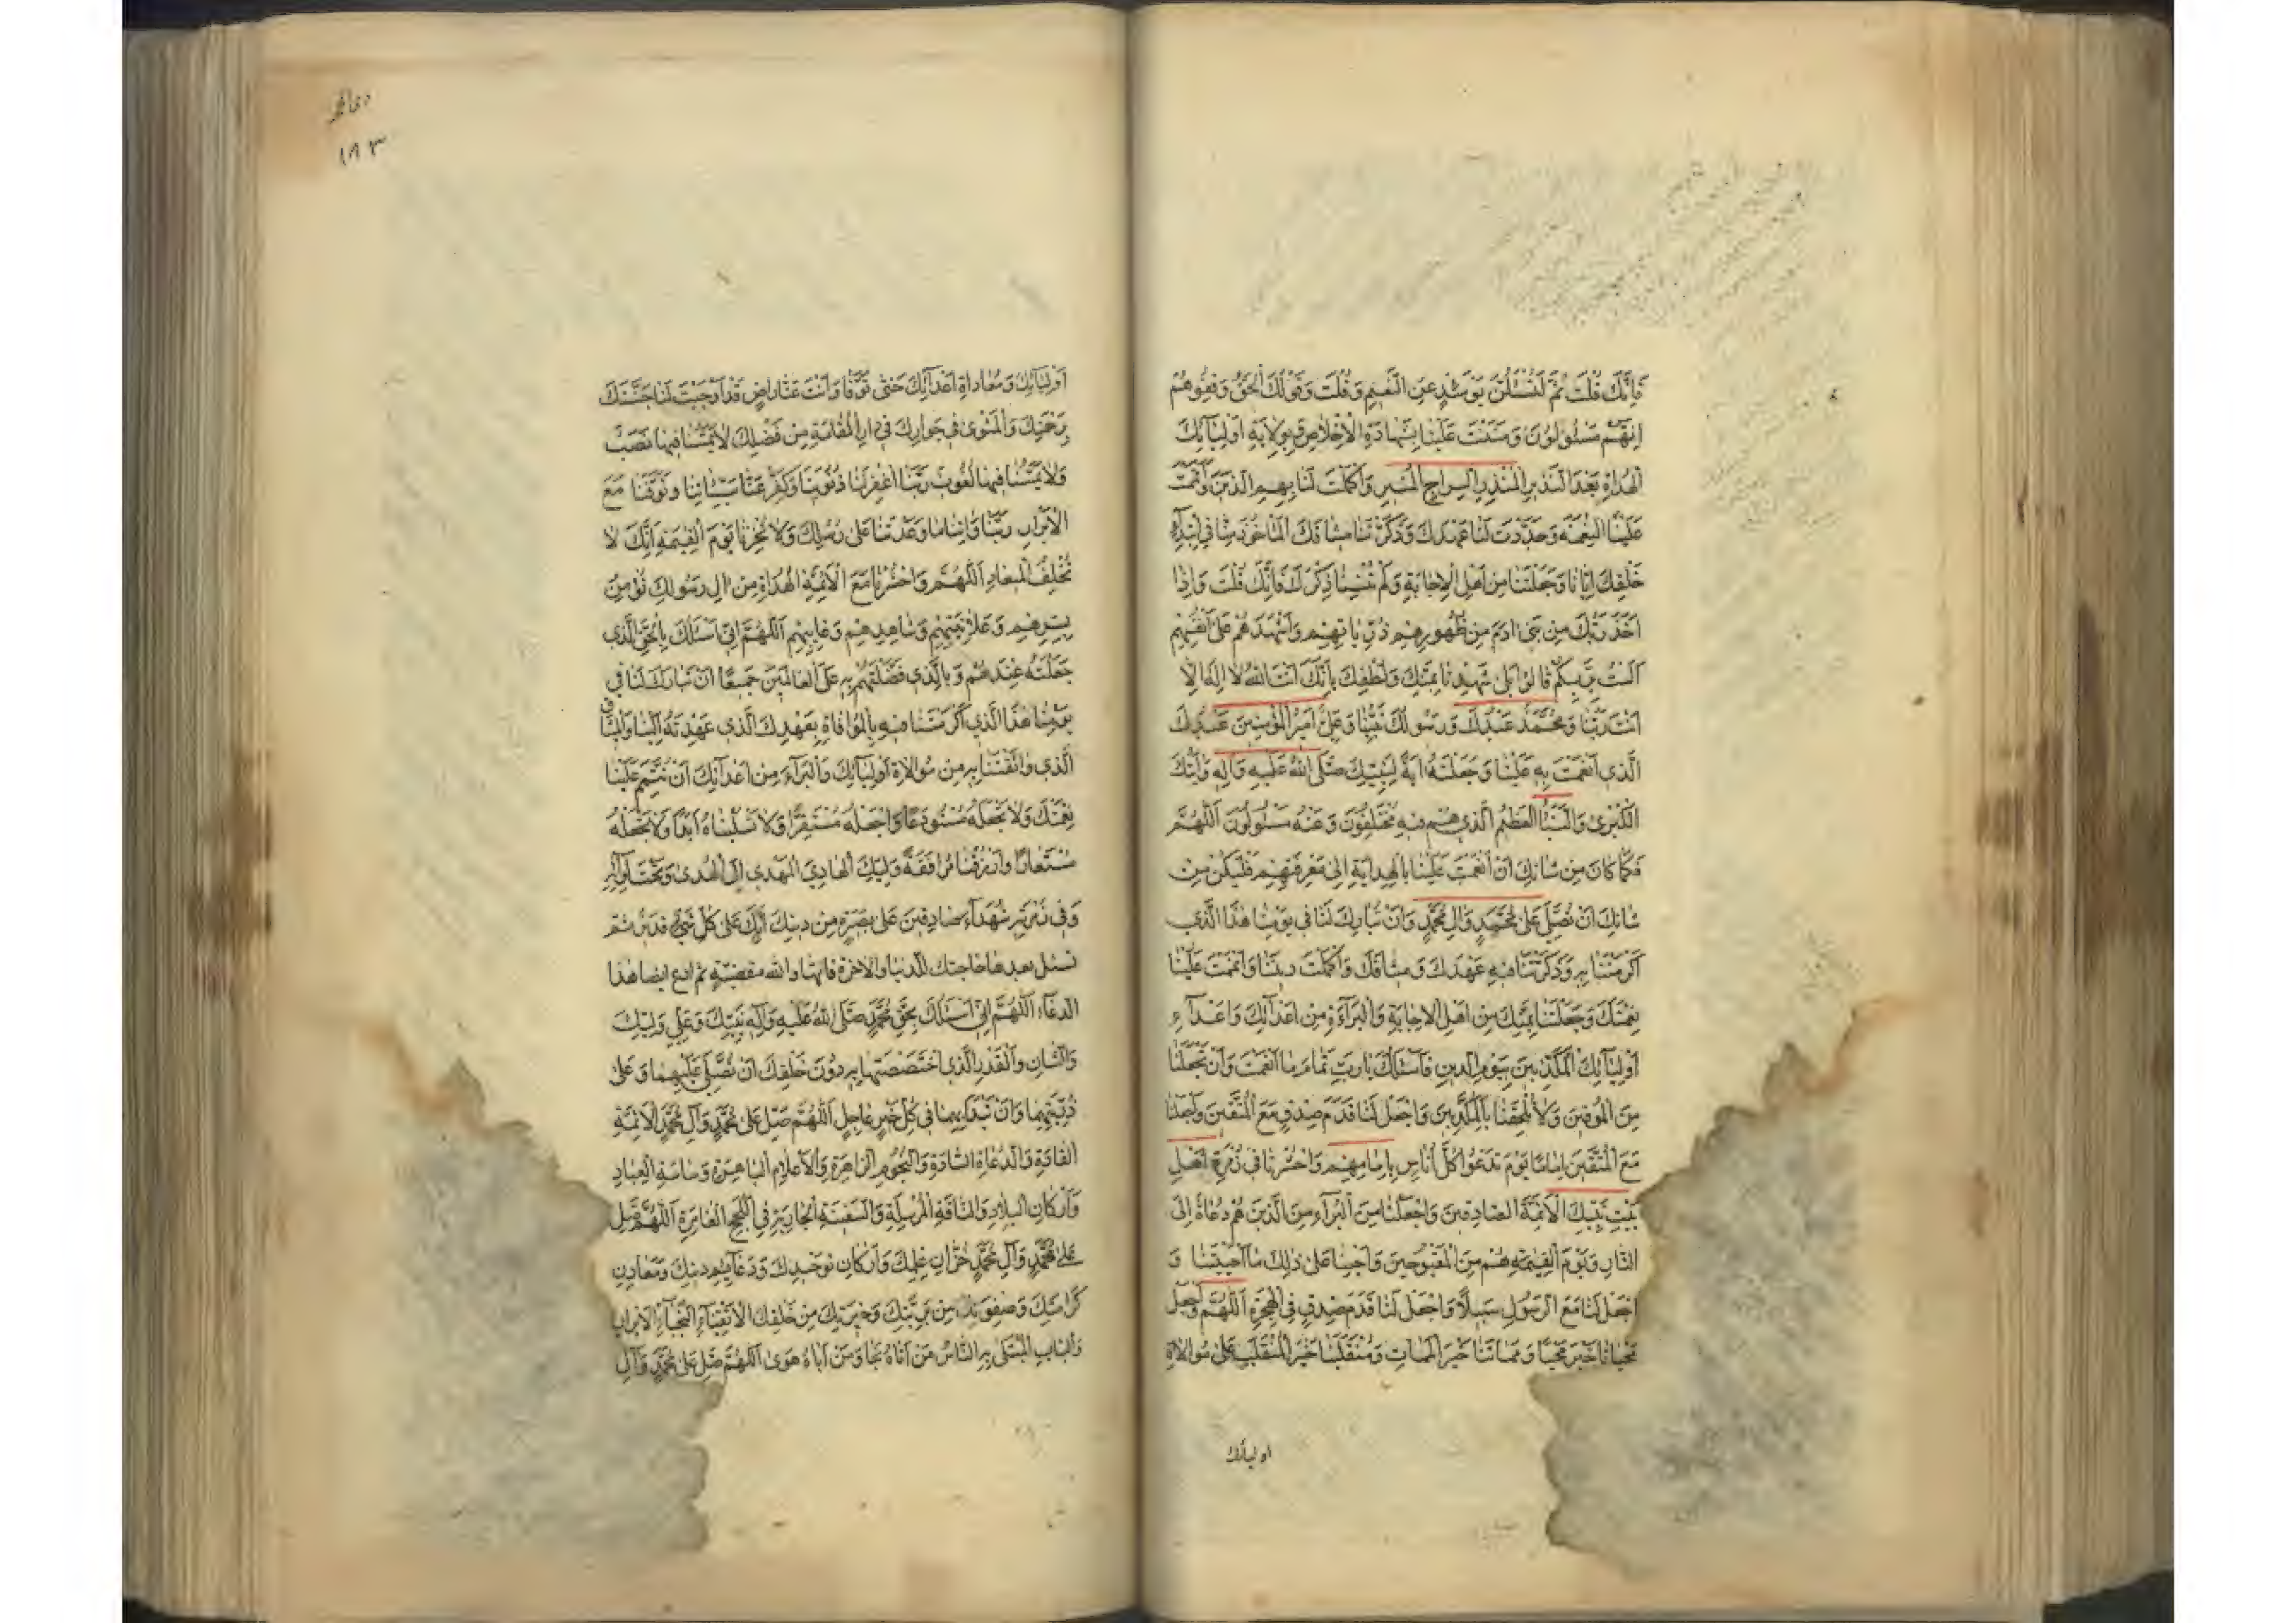 فَاِنَّكَ قُلْتَ ثُمَّ لَتُسْئَلُنَّ يَوْمَئِذٍ عَنِ النَّعِيمِ وَقُلْتَ وَقَوْلُكَ الْحَقُّ وَقِفُوهُمْ
اِنَّهُمْ مَسْئُولُونَ وَمَنَنْتَ عَلَيْنَا بِشَهَادَةِ الْاِخْلَاصِ وَبِوِلَايَةِ اَوْلِيَآئِكَ
الْهُدَاةِ بَعْدَ النَّذِيرِ الْمُنْذِرِ السِّرَاجِ الْمُنِيرِ وَاَكْمَلْتَ لَنَا بِهِمِ الدِّينَ وَاَتْمَمْتَ
عَلَيْنَا النِّعْمَةَ وَجَدَّدْتَ لَنَا عَهْدَكَ وَذَكَّرْتَنَا مِيثَاقَكَ الْمَاْخُوذَ مِنَّا فِي ابْتِدَآءِ
خَلْقِكَ اِيَّانَا وَجَعَلْتَنَا مِنْ اَهْلِ الْاِجَابَةِ وَلَمْ تُنْسِنَا ذِكْرَكَ فَاِنَّكَ قُلْتَ وَاِذْ
اَخَذَ رَبُّكَ مِنْ بَنِي ادَمَ مِنْ ظُهُورِهِمْ ذُرِّيَّاتِهِمْ وَاَشْهَدَهُمْ عَلَى اَنْفُسِهِمْ
اَلَسْتُ بِرَبِّكُمْ قَالُوا بَلَى شَهِدْنَا بِمَنِّكَ وَلُطْفِكَ بِاَنَّكَ اَنْتَ اللهُ لَا اِلَهَ اِلَّا
اَنْتَ رَبُّنَا وَمُحَمَّدٌ عَبْدُكَ وَرَسُولُكَ نَبِيُّنَا وَعَلِيٌّ اَمِيرُ الْمُؤْمِنِينَ عَبْدُكَ
الَّذِي اَنْعَمْتَ بِهِ عَلَيْنَا وَجَعَلْتَهُ ايَةً لِنَبِيِّكَ صَلَّى اللهُ عَلَيْهِ وَآلِهِ وَايَتَكَ
الْكُبْرَى وَالنَّبَأَ الْعَظِيمَ الَّذِي هُمْ فِيهِ مُخْتَلِفُونَ وَعَنْهُ مَسْئُولُونَ اَللّهُمَّ
فَكَمَا كَانَ مِنْ شَانِكَ اَنْ اَنْعَمْتَ عَلَيْنَا بِالْهِدَايَةِ اِلَى مَعْرِفَتِهِمْ فَلْيَكُنْ مِنْ
شَانِكَ اَنْ تُصَلِّيَ عَلَى مُحَمَّدٍ وَالِ مُحَمَّدٍ وَاَنْ تُبَارِكَ لَنَا فِي يَوْمِنَا هَذَا الَّذِي
اَكْرَمْتَنَا بِهِ وَذَكَّرْتَنَا فِيهِ عَهْدَكَ وَمِيثَاقَكَ وَاَكْمَلْتَ دِينَنَا وَاَتْمَمْتَ عَلَيْنَا
نِعْمَتَكَ وَجَعَلْتَنَا بِمَنِّكَ مِنْ اَهْلِ الْاِجَابَةِ وَالْبَرَآءَةِ مِنْ اَعْدَآئِكَ وَاَعْدَآءِ
اَوْلِيَآئِكَ الْمُكَذِّبِينَ بِيَوْمِ الدِّينِ فَاَسْئَلُكَ يَا رَبِّ تَمَامَ مَا اَنْعَمْتَ وَاَنْ تَجْعَلَنَا
مِنَ الْمُوقِنِينَ وَلَا تُلْحِقْنَا بِالْمُكَذِّبِينَ وَاجْعَلْ لَنَا قَدَمَ صِدْقٍ مَعَ الْمُتَّقِينَ وَاجْعَلْنَا
مَعَ الْمُتَّقِينَ اِمَامًا يَوْمَ تَدْعُوا كُلَّ اُنَاسٍ بِاِمَامِهِمْ وَاحْشُرْنَا فِي زُمْرَةِ اَهْلِ
بَيْتِ نَبِيِّكَ الْاَئِمَّةِ الصَّادِقِينَ وَاجْعَلْنَا مِنَ الْبُرَآءِ مِنَ الَّذِينَ هُمْ دُعَاةٌ اِلَى
النَّارِ وَيَوْمَ الْقِيمَةِ هُمْ مِنَ الْمَقْبُوحِينَ وَاَحْيِنَا عَلَى ذَلِكَ مَا اَحْيَيْتَنَا وَ
اجْعَلْ لَنَا مَعَ الرَّسُولِ سَبِيلًا وَاجْعَلْ لَنَا قَدَمَ صِدْقٍ فِي الْهِجْرَةِ اَللّهُمَّ وَاجْعَلْ
مَحْيَانَا خَيْرَ مَحْيًا وَمَمَاتَنَا خَيْرَ الْمَمَاتِ وَمُنْقَلَبَنَا خَيْرَ الْمُنْقَلَبِ عَلَى مُوَالَاةِ
اوليائك
۱۸۳
اَوْلِيَآئِكَ وَمُعَادَاةِ اَعْدَآئِكَ حَتَّى تَوَفَّانَا وَاَنْتَ عَنَّا رَاضٍ قَدْ اَوْجَبْتَ لَنَا جَنَّتَكَ
بِرَحْمَتِكَ وَالْمَثْوَى فِي جِوَارِكَ فِي دَارِ الْمُقَامَةِ مِنْ فَضْلِكَ لَا يَمَسُّنَا فِيهَا نَصَبٌ
وَلَا يَمَسُّنَا فِيهَا لُغُوبٌ رَبَّنَا اغْفِرْ لَنَا ذُنُوبَنَا وَكَفِّرْ عَنَّا سَيِّئَاتِنَا وَتَوَفَّنَا مَعَ
الْاَبْرَارِ رَبَّنَا وَاتِنَا مَا وَعَدْتَنَا عَلَى رُسُلِكَ وَلَا تُخْزِنَا يَوْمَ الْقِيمَةِ اِنَّكَ لَا
تُخْلِفُ الْمِيعَادَ اَللّهُمَّ وَاحْشُرْنَا مَعَ الْاَئِمَّةِ الْهُدَاةِ مِنْ الِ رَسُولِكَ نُؤْمِنُ
بِسِرِّهِمْ وَعَلَانِيَتِهِمْ وَشَاهِدِهِمْ وَغَايِبِهِمْ اَللّهُمَّ اِنِّي اَسْئَلُكَ بِالْحَقِّ الَّذِي
جَعَلْتَهُ عِنْدَهُمْ وَبِالَّذِي فَضَّلْتَهُمْ بِهِ عَلَى الْعَالَمِينَ جَمِيعًا اَنْ تُبَارِكَ لَنَا فِي
يَوْمِنَا هَذَا الَّذِي اَكْرَمْتَنَا فِيهِ بِالْمُوَافَاةِ بِعَهْدِكَ الَّذِي عَهِدْتَهُ اِلَيْنَا وَالْمِيثَاقِ
الَّذِي وَاثَقْتَنَا بِهِ مِنْ مُوَالَاةِ اَوْلِيَآئِكَ وَالْبَرَآءَةِ مِنْ اَعْدَآئِكَ اَنْ تُتِمَّ عَلَيْنَا
نِعْمَتَكَ وَلَا تَجْعَلْهُ مُسْتَوْدَعًا وَاجْعَلْهُ مُسْتَقِرًّا وَلَا تَسْلُبْنَاهُ اَبَدًا وَلَا تَجْعَلْهُ
مُسْتَعَارًا وَارْزُقْنَا مُرَافَقَةَ وَلِيِّكَ الْهَادِي الْمَهْدِي اِلَى الْهُدَى وَتَحْتَ لِوَآئِهِ
وَفِي زُمْرَتِهِ شُهَدَآءَ صَادِقِينَ عَلَى بَصِيرَةٍ مِنْ دِينِكَ اِنَّكَ عَلَى كُلِّ شَيْءٍ قَدِيرٌ ثم
تسئل بعدها حاجتك للدنيا والاخرة فانها والله مقضية ثم ادع ايضا هذا
الدعآء اَللّهُمَّ اِنِّي اَسْئَلُكَ بِحَقِّ مُحَمَّدٍ صَلَّى اللهُ عَلَيْهِ وَآلِهِ نَبِيِّكَ وَعَلِيٍّ وَلِيِّكَ
وَالشَّانِ وَالْقَدْرِ الَّذِي اخْتَصَصْتَهُمَا بِهِ دُونَ خَلْقِكَ اَنْ تُصَلِّيَ عَلَيْهِمَا وَعَلَى
ذُرِّيَّتِهِمَا وَاَنْ تَبْدَأَ بِهِمَا فِي كُلِّ خَيْرٍ عَاجِلٍ اَللّهُمَّ صَلِّ عَلَى مُحَمَّدٍ وَآلِ مُحَمَّدٍ الْاَئِمَّةِ
الْقَادَةِ وَالدُّعَاةِ السَّادَةِ وَالنُّجُومِ الزَّاهِرَةِ وَالْاَعْلَامِ الْبَاهِرَةِ وَسَاسَةِ الْعِبَادِ
وَاَرْكَانِ الْبِلَادِ وَالنَّاقَةِ الْمُرْسَلَةِ وَالسَّفِينَةِ الْجَارِيَةِ فِي اللُّجَجِ الْغَامِرَةِ اَللّهُمَّ صَلِّ
عَلَى مُحَمَّدٍ وَآلِ مُحَمَّدٍ خُزَّانِ عِلْمِكَ وَاَرْكَانِ تَوْحِيدِكَ وَدَعَآئِمِ دِينِكَ وَمَعَادِنِ
كَرَامَتِكَ وَصِفْوَتِكَ مِنْ بَرِيَّتِكَ وَخِيَرَتِكَ مِنْ خَلْقِكَ الْاَتْقِيَآءِ النُّجَبَآءِ الْاَبْرَارِ
وَالْبَابِ الْمُبْتَلَى بِهِ النَّاسُ مَنْ اَتَاهُ نَجَا وَمَنْ اَبَاهُ هَوَى اَللّهُمَّ صَلِّ عَلَى مُحَمَّدٍ وَآلِ